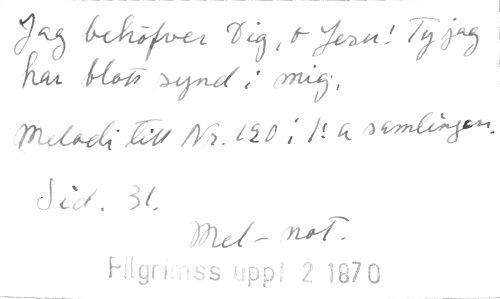 Jag behöfver Dig, o Jesu! Ty jag
har blott synd i mig.
Melodi till Nr. 120 i 1:a samlingen.
Sid. 31.
Mel-not.
Pilgrimss uppl 2 1870